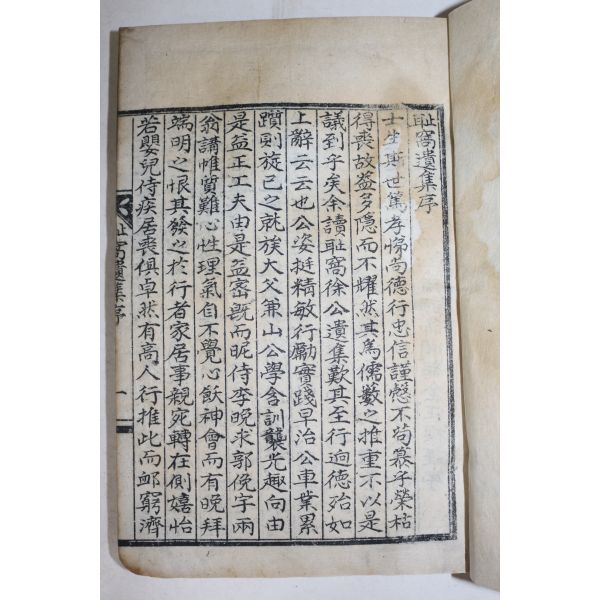 耻窩遺集序
士生斯世篤孝悌尚德行忠信謹慤不苟慕乎榮枯
得喪故益多隱而不耀然其為儒藪之推重不以是
議到乎矣余讀耻窩徐公遺集歎其至行逈德殆如
上辭云云也公姿挺精敏行勵實踐早治公車業累
躓則旋已之就族大父兼山公學含訓襲光趣向由
是益正工夫由是益密既而昵侍李晚求郭俛宇兩
翁講帷質難心性理氣自不覺心飫神會而有晚拜
端明之恨其發之於行者家居事親宛轉在側嬉怡
若嬰兒侍疾居喪俱卓然有高人行推此而郵窮濟
耻窩遺集序
一